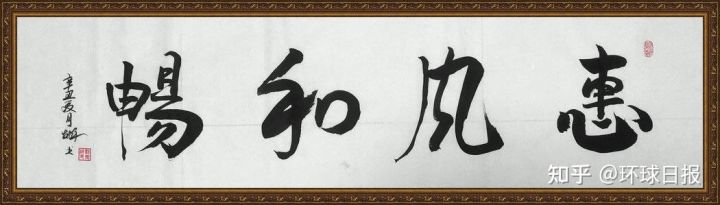 惠风和畅
辛丑夏月
知乎 @环球日报